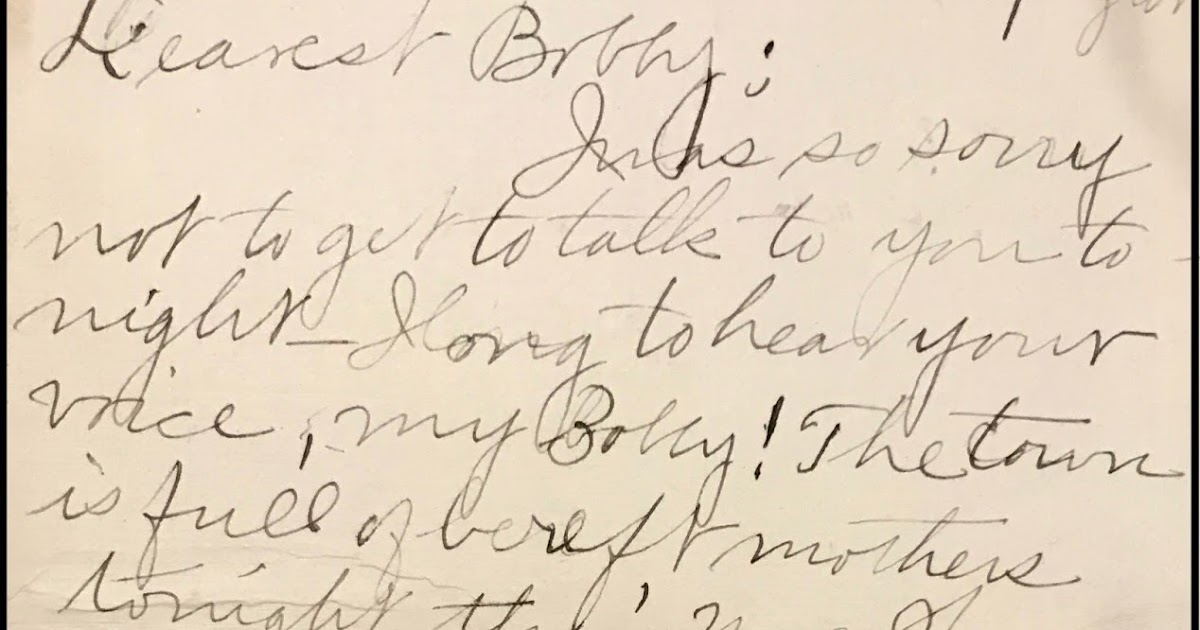 Dearest Bobby:
I was so sorry
not to get to talk to you to-
night – I long to hear your
voice, my Bobby! The town
is full of bereft mothers
tonight